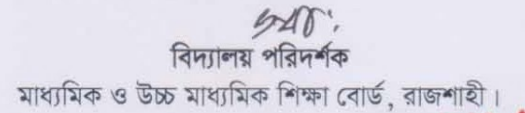 স্বাঃ
বিদ্যালয় পরিদর্শক
মাধ্যমিক ও উচ্চ মাধ্যমিক শিক্ষা বোর্ড, রাজশাহী ।